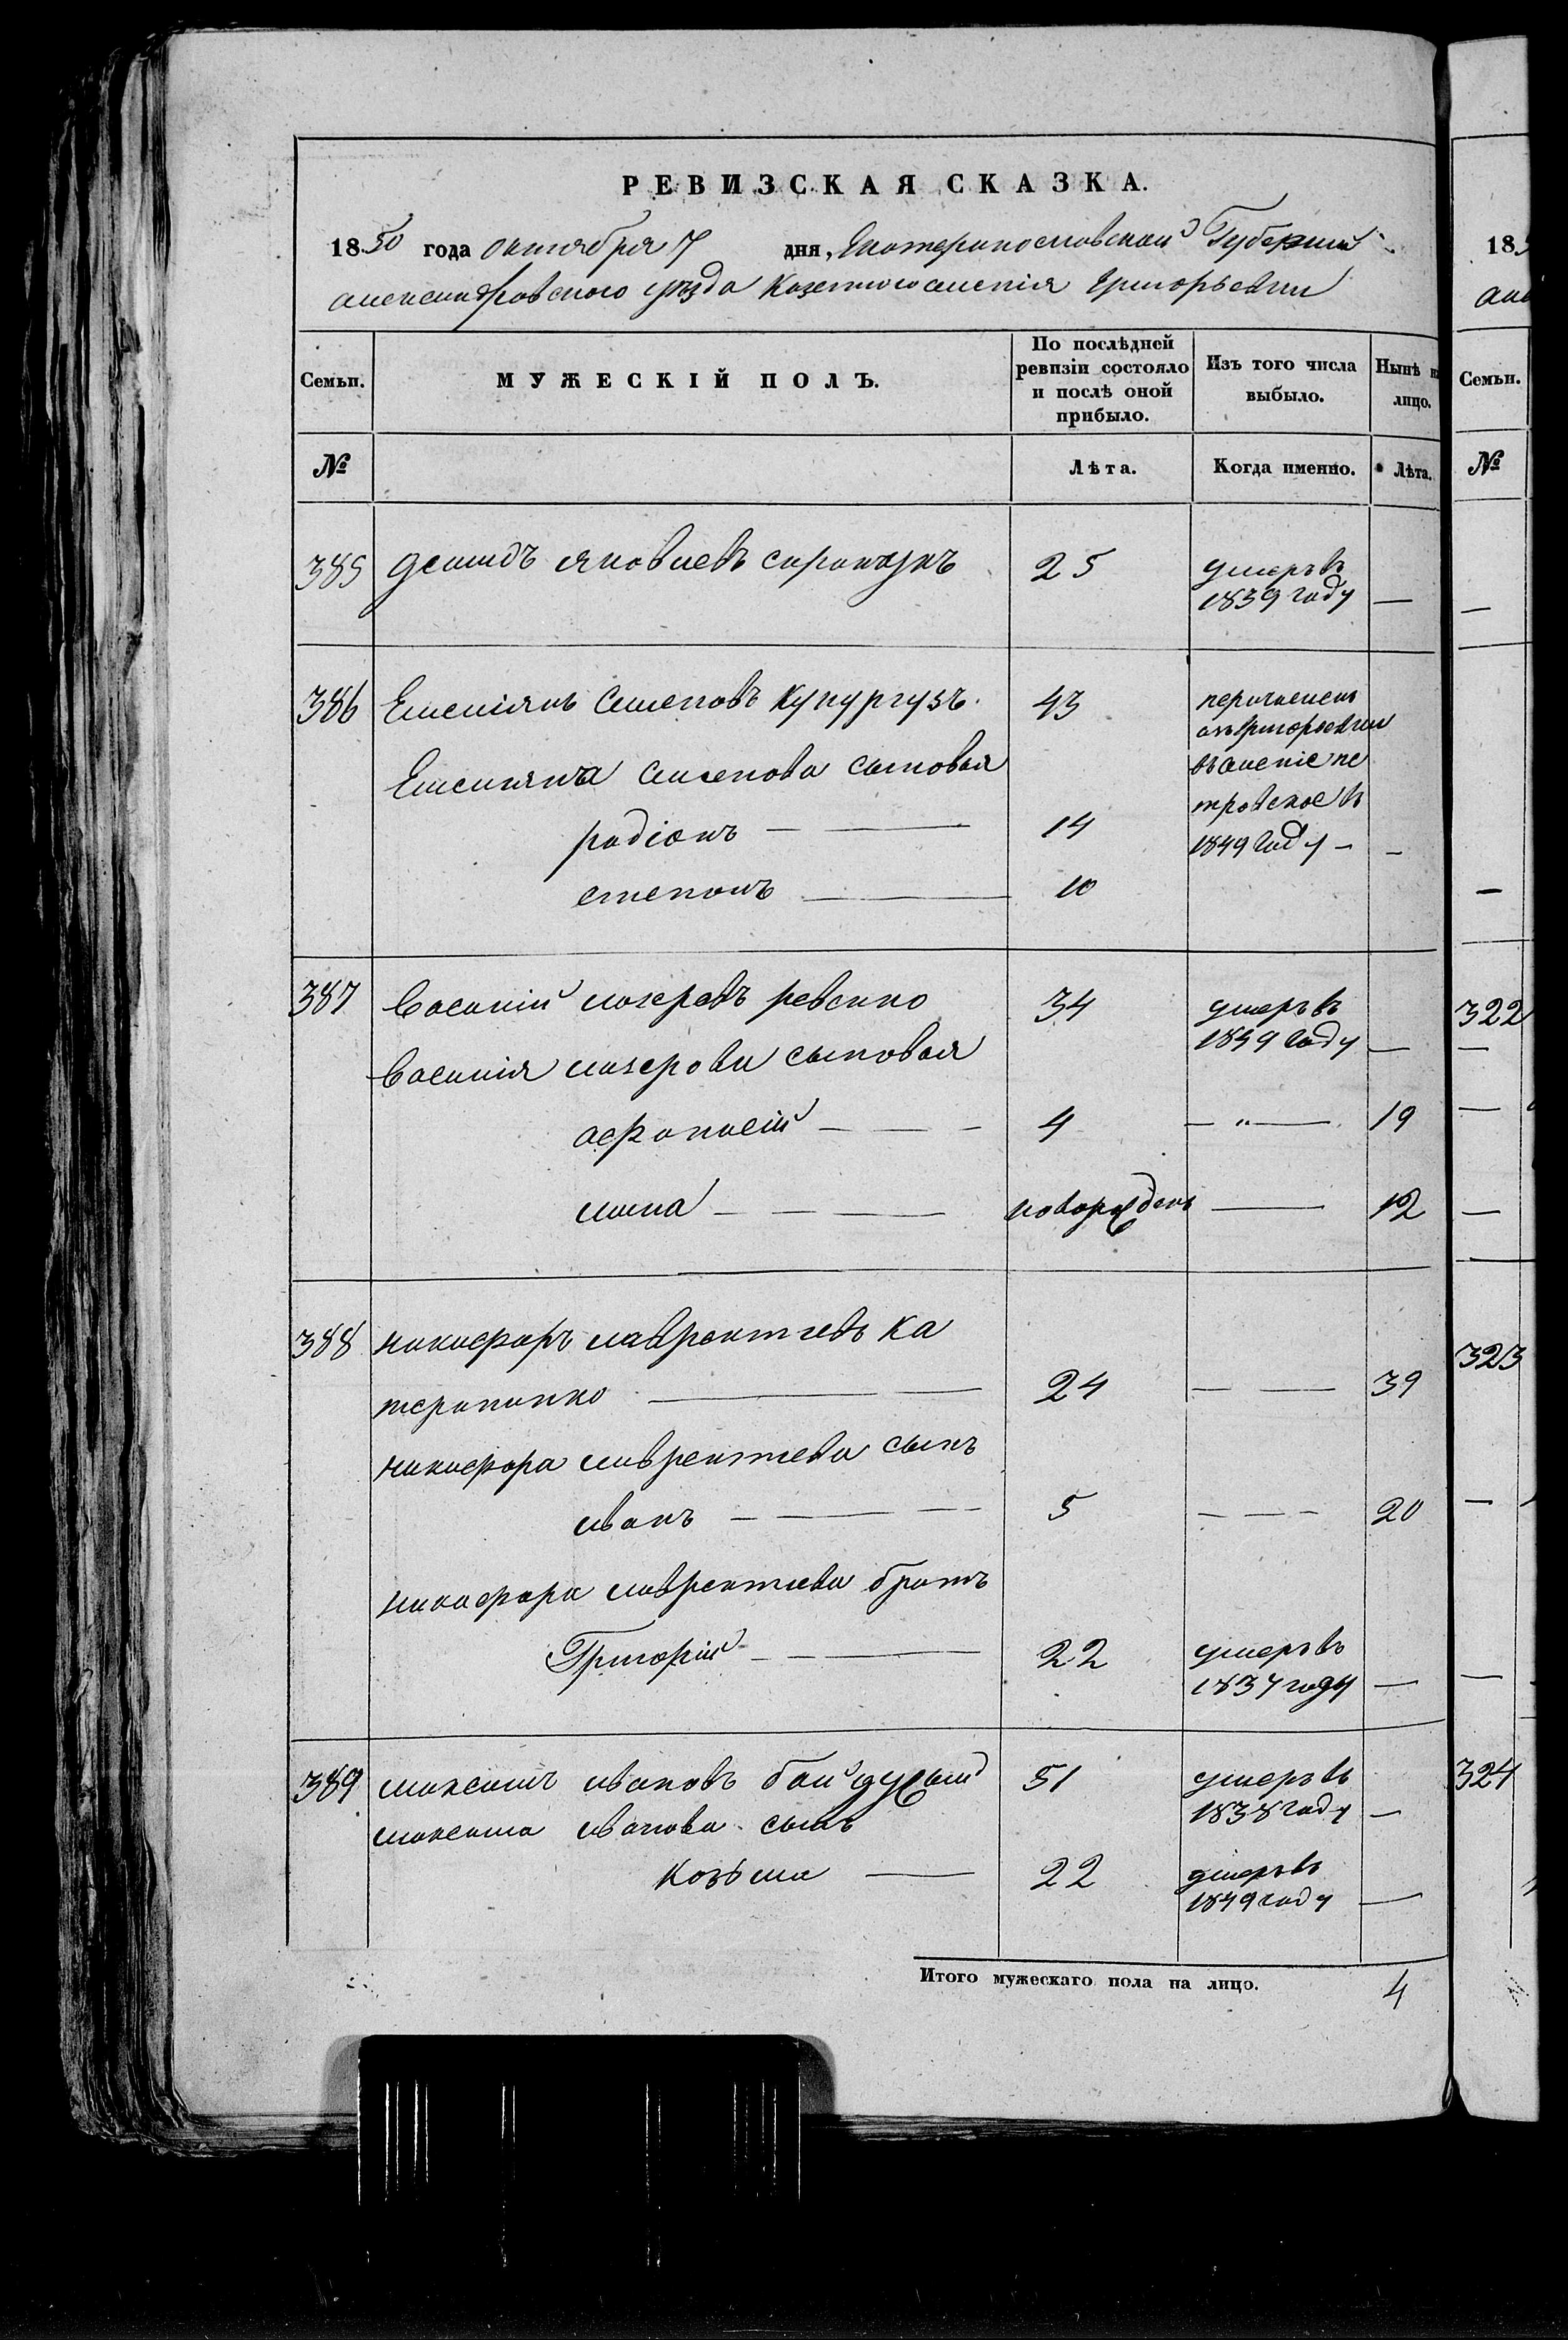 РЕВИЗСКАЯ СКАЗКА.
1850 года октября 7 дня, Екатеринославской Губернии
александровского уезда Казенного селенія Григорьевки
Семьи.
МУЖЕСКІЙ ПОЛЪ.
По послѣдней ревизіи состояло и послѣ оной прибыло.
Изъ того числа выбыло.
Нынѣ на лицо.
№
Лѣта.
Когда именно.
Лѣта.
385 демидъ яковлевъ 25 умеръ въ
1839 году —
386 Емеліянъ Семеновъ 43 перечисленъ
изъ григорьевки
Емельяна Семенова сыновья
въ селеніе пе
тровское въ
радіонъ — 14
1849 году — —
степанъ — 10
387 Василій назаровъ ревенко 34 умеръ въ
1849 году —
Василія назарова сыновья
афанасій — 4 — " — 19
мина — новорожденъ — 12
388 никифоръ лаврентьевъ ка
терининко — 24 — 39
никифора лаврентьева сынъ
иванъ — 5 — 20
никифора лаврентьева братъ
Григорій — 22 умеръ въ
1837 году —
389 максимъ ивановъ 51 умеръ въ
1838 году —
максима иванова сынъ
козьма — 22 умеръ въ
1849 году —
Итого мужескаго пола на лицо. 4
18
Семьи.
№
322
323
324